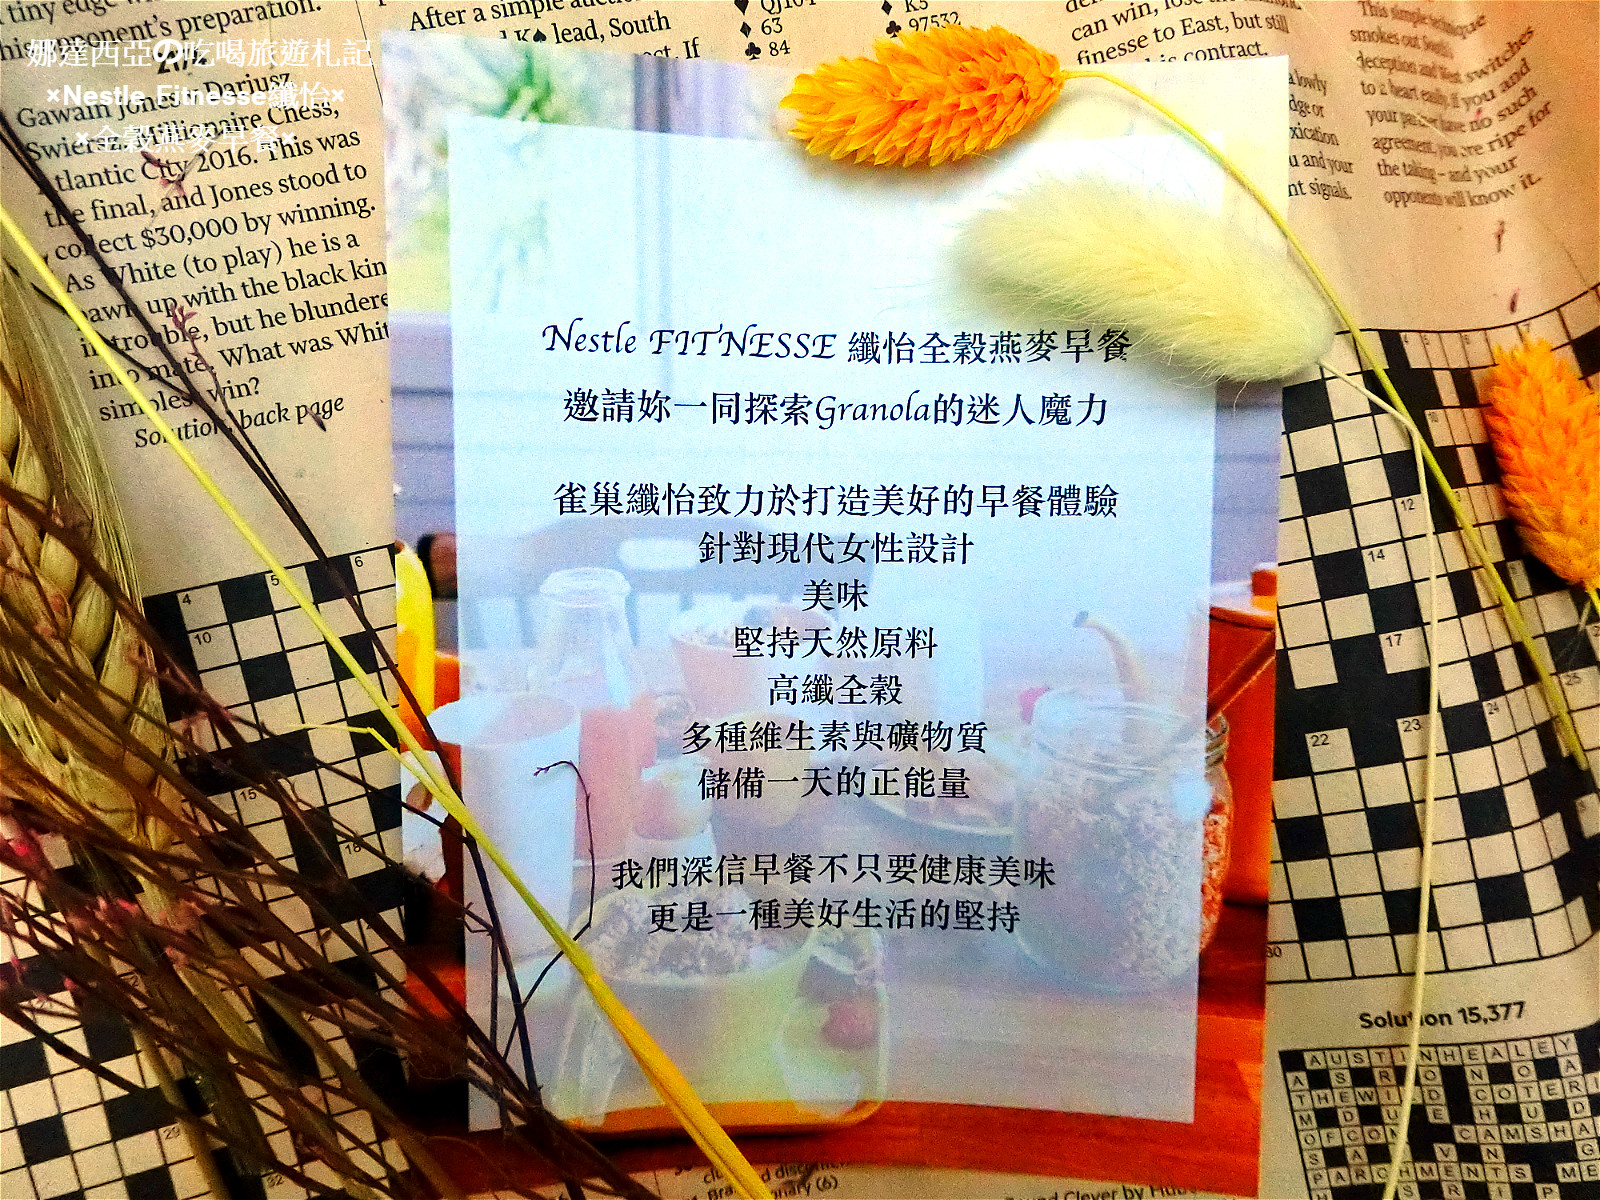 娜達西亞の吃喝旅遊札記
×Nestle Fitnesse纖怡×
×全穀燕麥早餐×
tiny edge
opponent's preparation.
Gawain Jones - Dariusz
Swiercz, Millionaire Chess,
Atlantic City 2016. This was
the final, and Jones stood to
collect $30,000 by winning.
As White (to play) he is a
pawn up with the black kin
in trouble, but he blundere
into mate. What was Whit
simplest win?
Solution, back page
After a simple
K♠ lead, South
If
♥ QJ104
♦ 63
♣ 84
♦ K5
♣ 97532
can win, lose
finesse to East, but still
his contract.
lowly
and your
nt signals.
This simple technique
smokes out South's
deception and West switches
to a heart easily. If you and
your partner have no such
agreement, you are ripe for
the taking – and your
opponents will know it.
Nestle FITNESSE 纖怡全穀燕麥早餐
邀請妳一同探索Granola的迷人魔力
雀巢纖怡致力於打造美好的早餐體驗
針對現代女性設計
美味
堅持天然原料
高纖全穀
多種維生素與礦物質
儲備一天的正能量
我們深信早餐不只要健康美味
更是一種美好生活的堅持
4
5
6
10
15
18
29
32
12
14
17
22
23
24
25
30
Solution 15,377
AUSTINHEALEY
THEWI
COTERI
OFCOM
CAMSHA
PARCHMENTS
(6)
Clever by